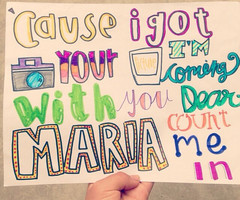 Cause i got
Your I'M
Coming
With you Dear
MARIA COUNT
me
in